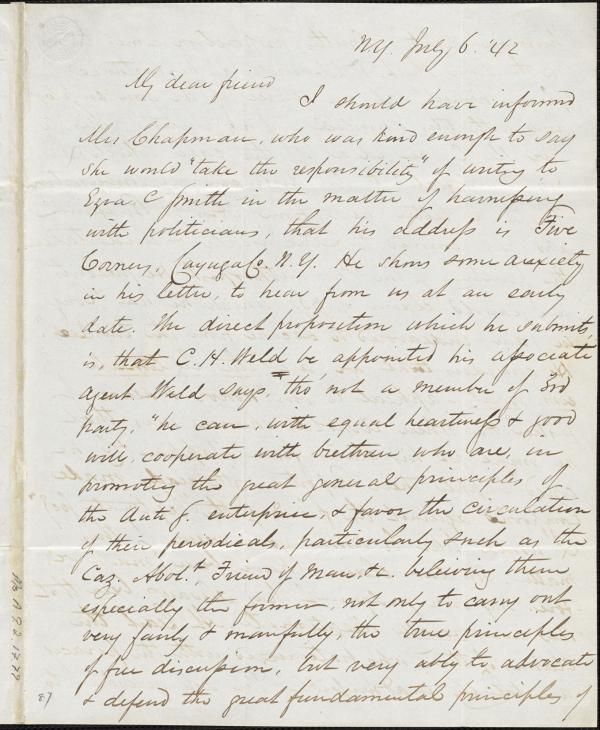 N.Y. July 6. '42
My dear friend
I should have informed
Mrs Chapman, who was kind enough to say
she would "take the responsibility" of writing to
Ezra C Smith in the matter of harnessing
with politicians, that his address is Five
Corners, Cayuga Co. N.Y. He shows some anxiety
in his letter, to hear from us at an early
date. The direct proposition which he submits,
is, that C. H. Weld be appointed his associate
agent. Weld says, "tho' not a member of 3rd
party, "he can, with equal heartiness & good
will, cooperate with brethren who are, in
promoting the great general principles of
the Anti S. enterprise, & favor the circulation
of their periodicals, particularly such as the
Caz. Abolt., Friend of Man, &c. believing them
especially the former, not only to carry out
very fairly & manfully, the true principles
of free discussion, but very ably to advocate
& defend the great fundamental principles of
87